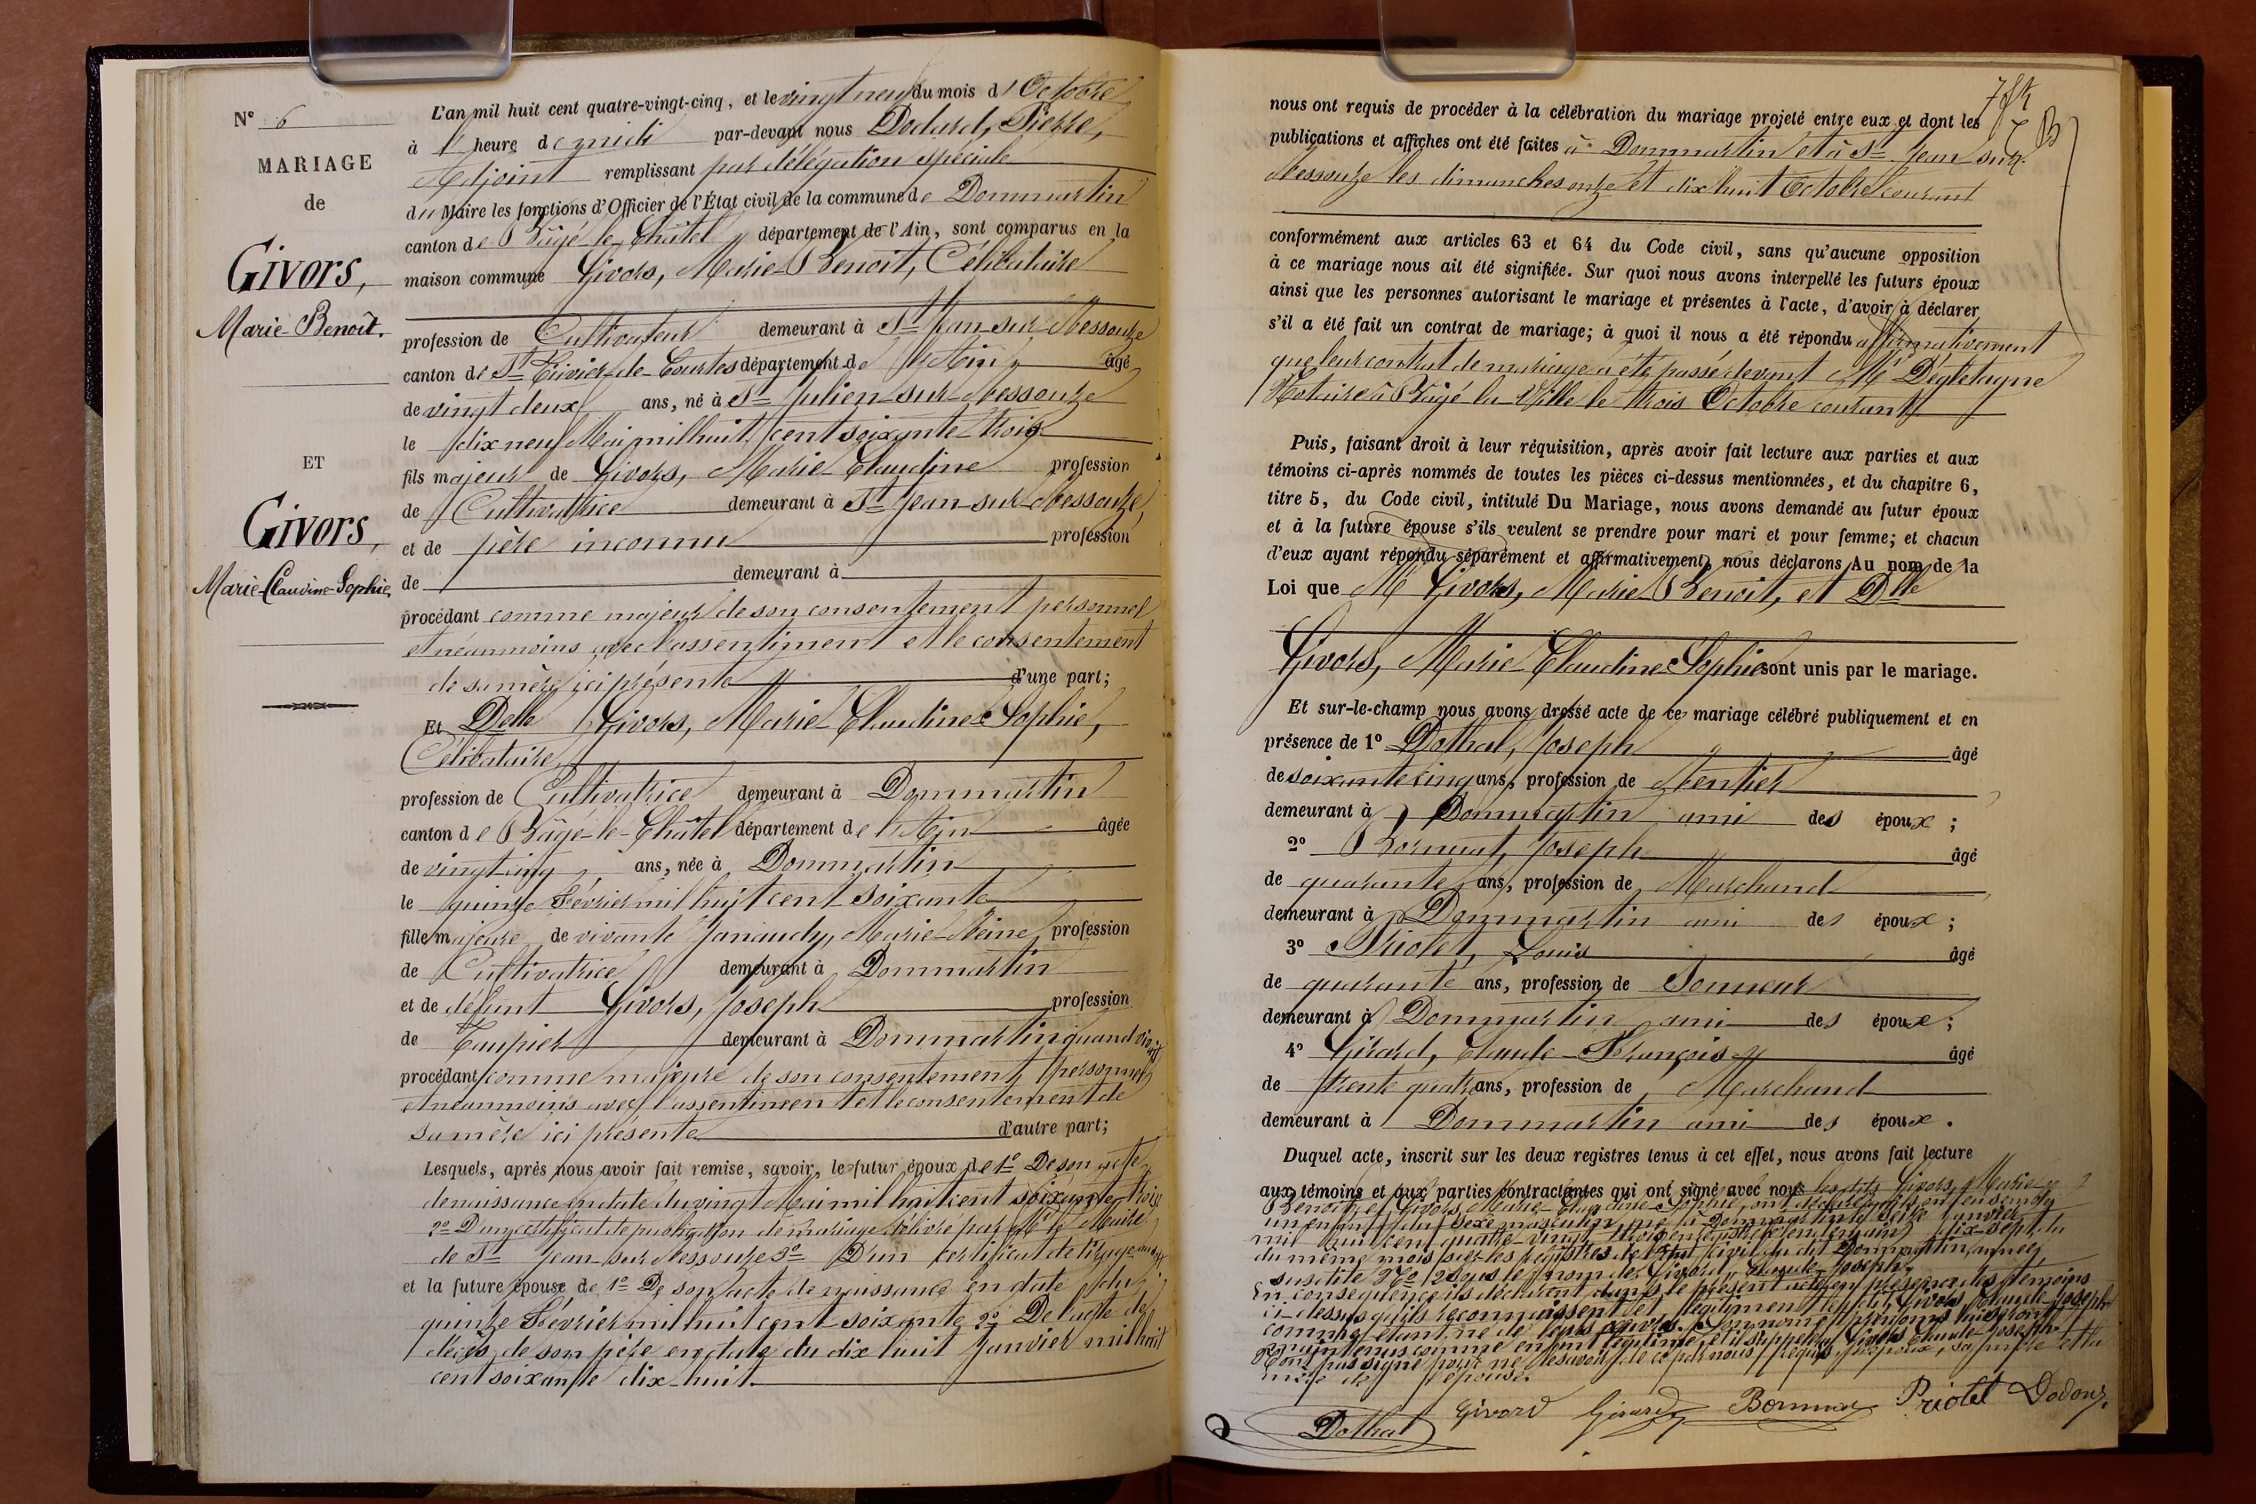 N° 6
MARIAGE
de
Givors,
Marie-Benoît.
ET
Givors,
Marie-Claudine-Sophie,
L'an mil huit cent quatre-vingt-cinq, et le vingt neuf du mois d'Octobre
à 1 heure de midi par-devant nous Dodard, Pierre,
Adjoint remplissant par délégation spéciale
du Maire les fonctions d'Officier de l'État civil de la commune de Dommartin
canton de Bâgé-le-Châtel département de l'Ain, sont comparus en la
maison commune Givors, Marie-Benoit, Célibataire
profession de Cultivateur demeurant à St Jean-sur-Ressouze
canton de St Trivier-de-Courtes département de l'Ain âgé
de vingt deux ans, né à St Julien-sur-Ressouze
le dix neuf Mai mil huit cent soixante trois
fils majeur de Givors, Marie Claudine profession
de Cultivatrice demeurant à St Jean-sur-Ressouze,
et de père inconnu profession
de demeurant à
procédant comme majeur de son consentement personnel
et néanmoins avec l'assentiment et le consentement
de sa mère ici présente d'une part;
Et Delle Givors, Marie Claudine Sophie,
Célibataire,
profession de Cultivatrice demeurant à Dommartin
canton de Bâgé-le-Châtel département de l'Ain âgée
de vingt cinq ans, née à Dommartin
le quinze Février mil huit cent soixante
fille majeure de vivante Janaudy, Marie-Reine, profession
de Cultivatrice demeurant à Dommartin
et de défunt Givors, Joseph profession
de Taupier demeurant à Dommartin quand vivait
procédant comme majeure de son consentement personnel
et néanmoins avec l'assentiment et le consentement de
sa mère ici présente d'autre part;
Lesquels, après nous avoir fait remise, savoir, le futur époux de 1° De son acte
de naissance en date du vingt Mai mil huit cent soixante trois
2° D'un certificat de publication de mariage délivré par Mr le Maire
de St Jean-sur-Ressouze 3° D'un certificat de tirage au sort
et la future épouse, de 1° De son acte de naissance en date du
quinze Février mil huit cent soixante 2° De l'acte de
décès de son père en date du dix huit Janvier mil huit
cent soixante dix-huit.
nous ont requis de procéder à la célébration du mariage projeté entre eux et dont les
publications et affiches ont été faites à Dommartin et à St Jean sur
Ressouze les dimanches onze et dix huit Octobre courant
conformément aux articles 63 et 64 du Code civil, sans qu'aucune opposition
à ce mariage nous ait été signifiée. Sur quoi nous avons interpellé les futurs époux
ainsi que les personnes autorisant le mariage et présentes à l'acte, d'avoir à déclarer
s'il a été fait un contrat de mariage; à quoi il nous a été répondu affirmativement
que leur contrat de mariage a été passé devant Me Dégletagne
Notaire à Bâgé la Ville le trois Octobre courant
Puis, faisant droit à leur réquisition, après avoir fait lecture aux parties et aux
témoins ci-après nommés de toutes les pièces ci-dessus mentionnées, et du chapitre 6,
titre 5, du Code civil, intitulé Du Mariage, nous avons demandé au futur époux
et à la future épouse s'ils veulent se prendre pour mari et pour femme; et chacun
d'eux ayant répondu séparément et affirmativement, nous déclarons Au nom de la
Loi que Mr Givors, Marie Benoit, et Delle
Givors, Marie Claudine Sophie sont unis par le mariage.
Et sur-le-champ nous avons dressé acte de ce mariage célébré publiquement et en
présence de 1° Dothal, Joseph âgé
de soixante cinq ans, profession de Rentier
demeurant à Dommartin ami des époux;
2° Bornuat, Joseph âgé
de quarante ans, profession de Marchand
demeurant à Dommartin ami des époux;
3° Priolet, Louis âgé
de quarante ans, profession de Sonneur
demeurant à Dommartin ami des époux;
4° Girard, Claude-François âgé
de trente quatre ans, profession de Marchand
demeurant à Dommartin ami des époux.
Duquel acte, inscrit sur les deux registres tenus à cet effet, nous avons fait lecture
aux témoins et aux parties contractantes qui ont signé avec nous les dits Givors, Marie
Benoit et Givors, Marie-Claudine-Sophie, ont déclaré ensemble
un enfant du sexe masculin, né à Dommartin le seize Janvier
mil huit cent quatre-vingt dix-sept du
du même mois sur les registres de l'état civil du dit Dommartin, année
susdite N° 2 sous le nom de Givors, Claude-Joseph.
En conséquence ils déclarent dans le présent acte en présence des témoins
ci-dessus qu'ils reconnaissent et légitiment le dit Givors Claude Joseph
comme étant né de leurs œuvres.
maintenus comme enfant légitime, et il s'appellera Givors Claude-Joseph.
N'ont pas signé pour ne le savoir de ce par nous requis, l'époux, sa mère et la
mère de l'épouse.
Dothal Givord Girard Bornuat Priolet Dodard